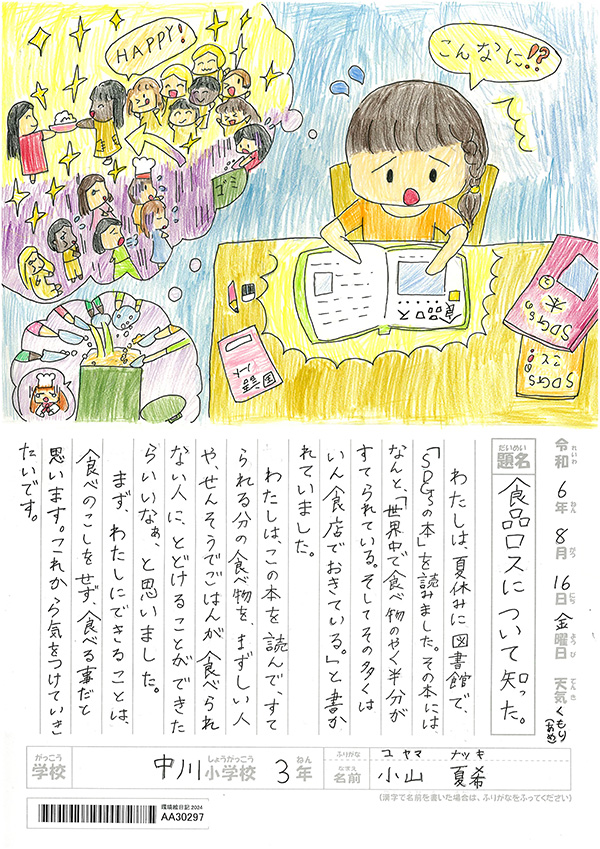 HAPPY!
こんなに!?
ゴミ
食品ロス
国語
ノート
SDGsの
本
SDGs
こと
令和6年8月16日金曜日 天気くもり(あめ)
れいわ ねん がつ にち ようび てんき
題名 食品ロスについて知った。
だいめい
わたしは、夏休みに図書館で、
「SDGsの本」を読みました。その本には、
なんと、「世界中で食べ物のやく半分が
すてられている。そしてその多くは
いん食店でおきている。」と書か
れていました。
わたしは、この本を読んで、すて
られる分の食べ物を、まずしい人
や、せんそうでごはんが食べられ
ない人に、とどけることができた
らいいなぁ、と思いました。
まず、わたしにできることは、
食べのこしをせず、食べる事だと
思います。これから気をつけていき
たいです。
がっこう しょうがっこう ねん ふりがな コヤマ ナツキ
学校 中川小学校 3年 名前 小山 夏希
なまえ
(漢字で名前を書いた場合は、ふりがなをふってください)
環境絵日記2024
AA30297